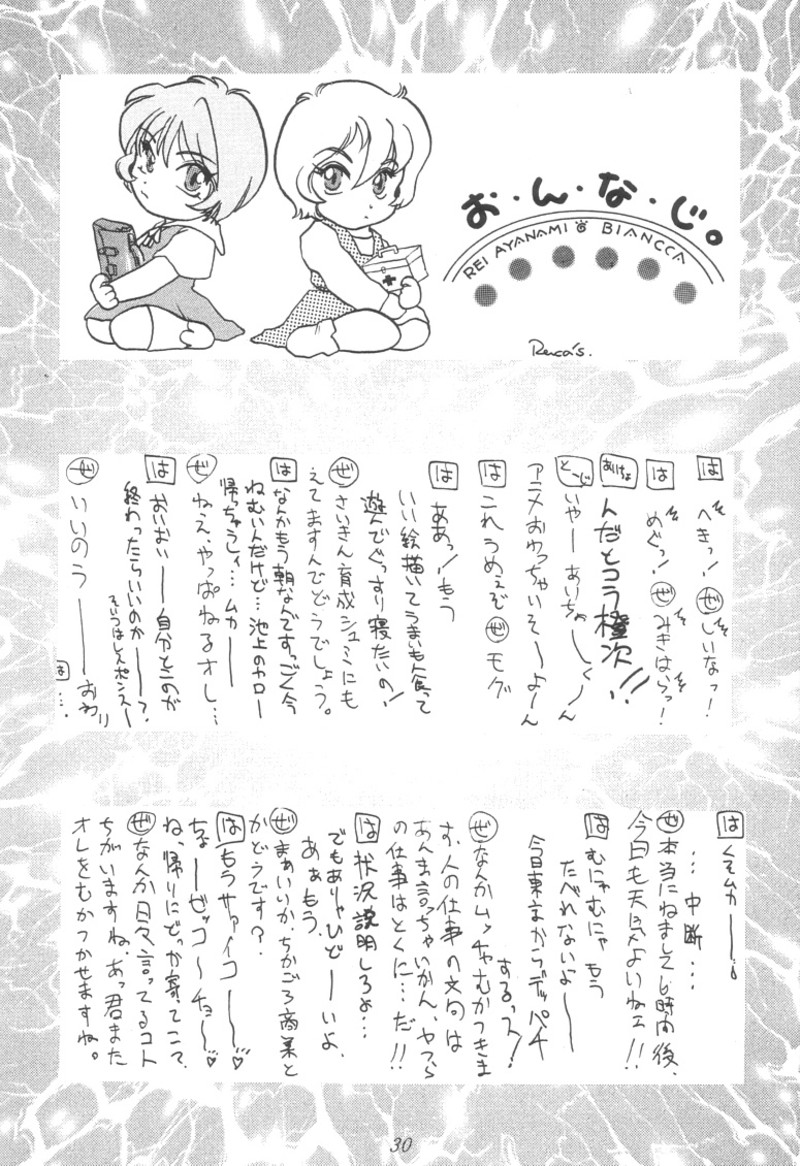 お・ん・な・じ。
REI AYANAMI BIANCCA
Reica's.
は へきっ! ぜ しいなっ!
は めぐっ! ぜ みきはらっ!
あけよ んだとコラ橙次!!
とーじ いやーあいちょ〜し〜ん
アニメおめっちゃいそ〜よ〜ん
は これうめぇぞ ぜ モグ
は ああっ!もう
いい絵描いてうまいもん食って
遊んでぐっすり寝たいの!
ぜ さいきん育成シュミにも
えてますんでどうでしょう。
は なんかもう朝なんですっごく今
ねむいんだけど…池上のヤロー
帰ちゃうしィ…ムカー
ぜ ねえ、やっぱねるオレ…
は おいおい――自分とこのが
終わったらいいのか――?
そいつはしんスポンスー
ぜ いいのう――おわり
は…。
は くそムカ――。
…中断…
ぜ 本当にねまして6時間後、
今日も天気よいねェ!!
は むにゃむにゃ もう
たべれないよ――
今日東京からデッパチ
するっス!
ぜ なんかムッチャむかつきま
す、人の仕事の文句は
あんま言っちゃいかん、ヤツら
の仕事はとくに…だ!!
は 状況説明しろよ…
でもありゃひど――いよ、
あぁもう、
ぜ まぁいいか、ちかごろ商業と
かどうです?
は もうサァイコ――♡
ちょ――ゼッコ〜チョ〜♡
ね、帰りにどっか寄てこて、
ぜ なんか日々言ってるコト
ちがいますね、あっ君また
オレをむかつかせますね。
30